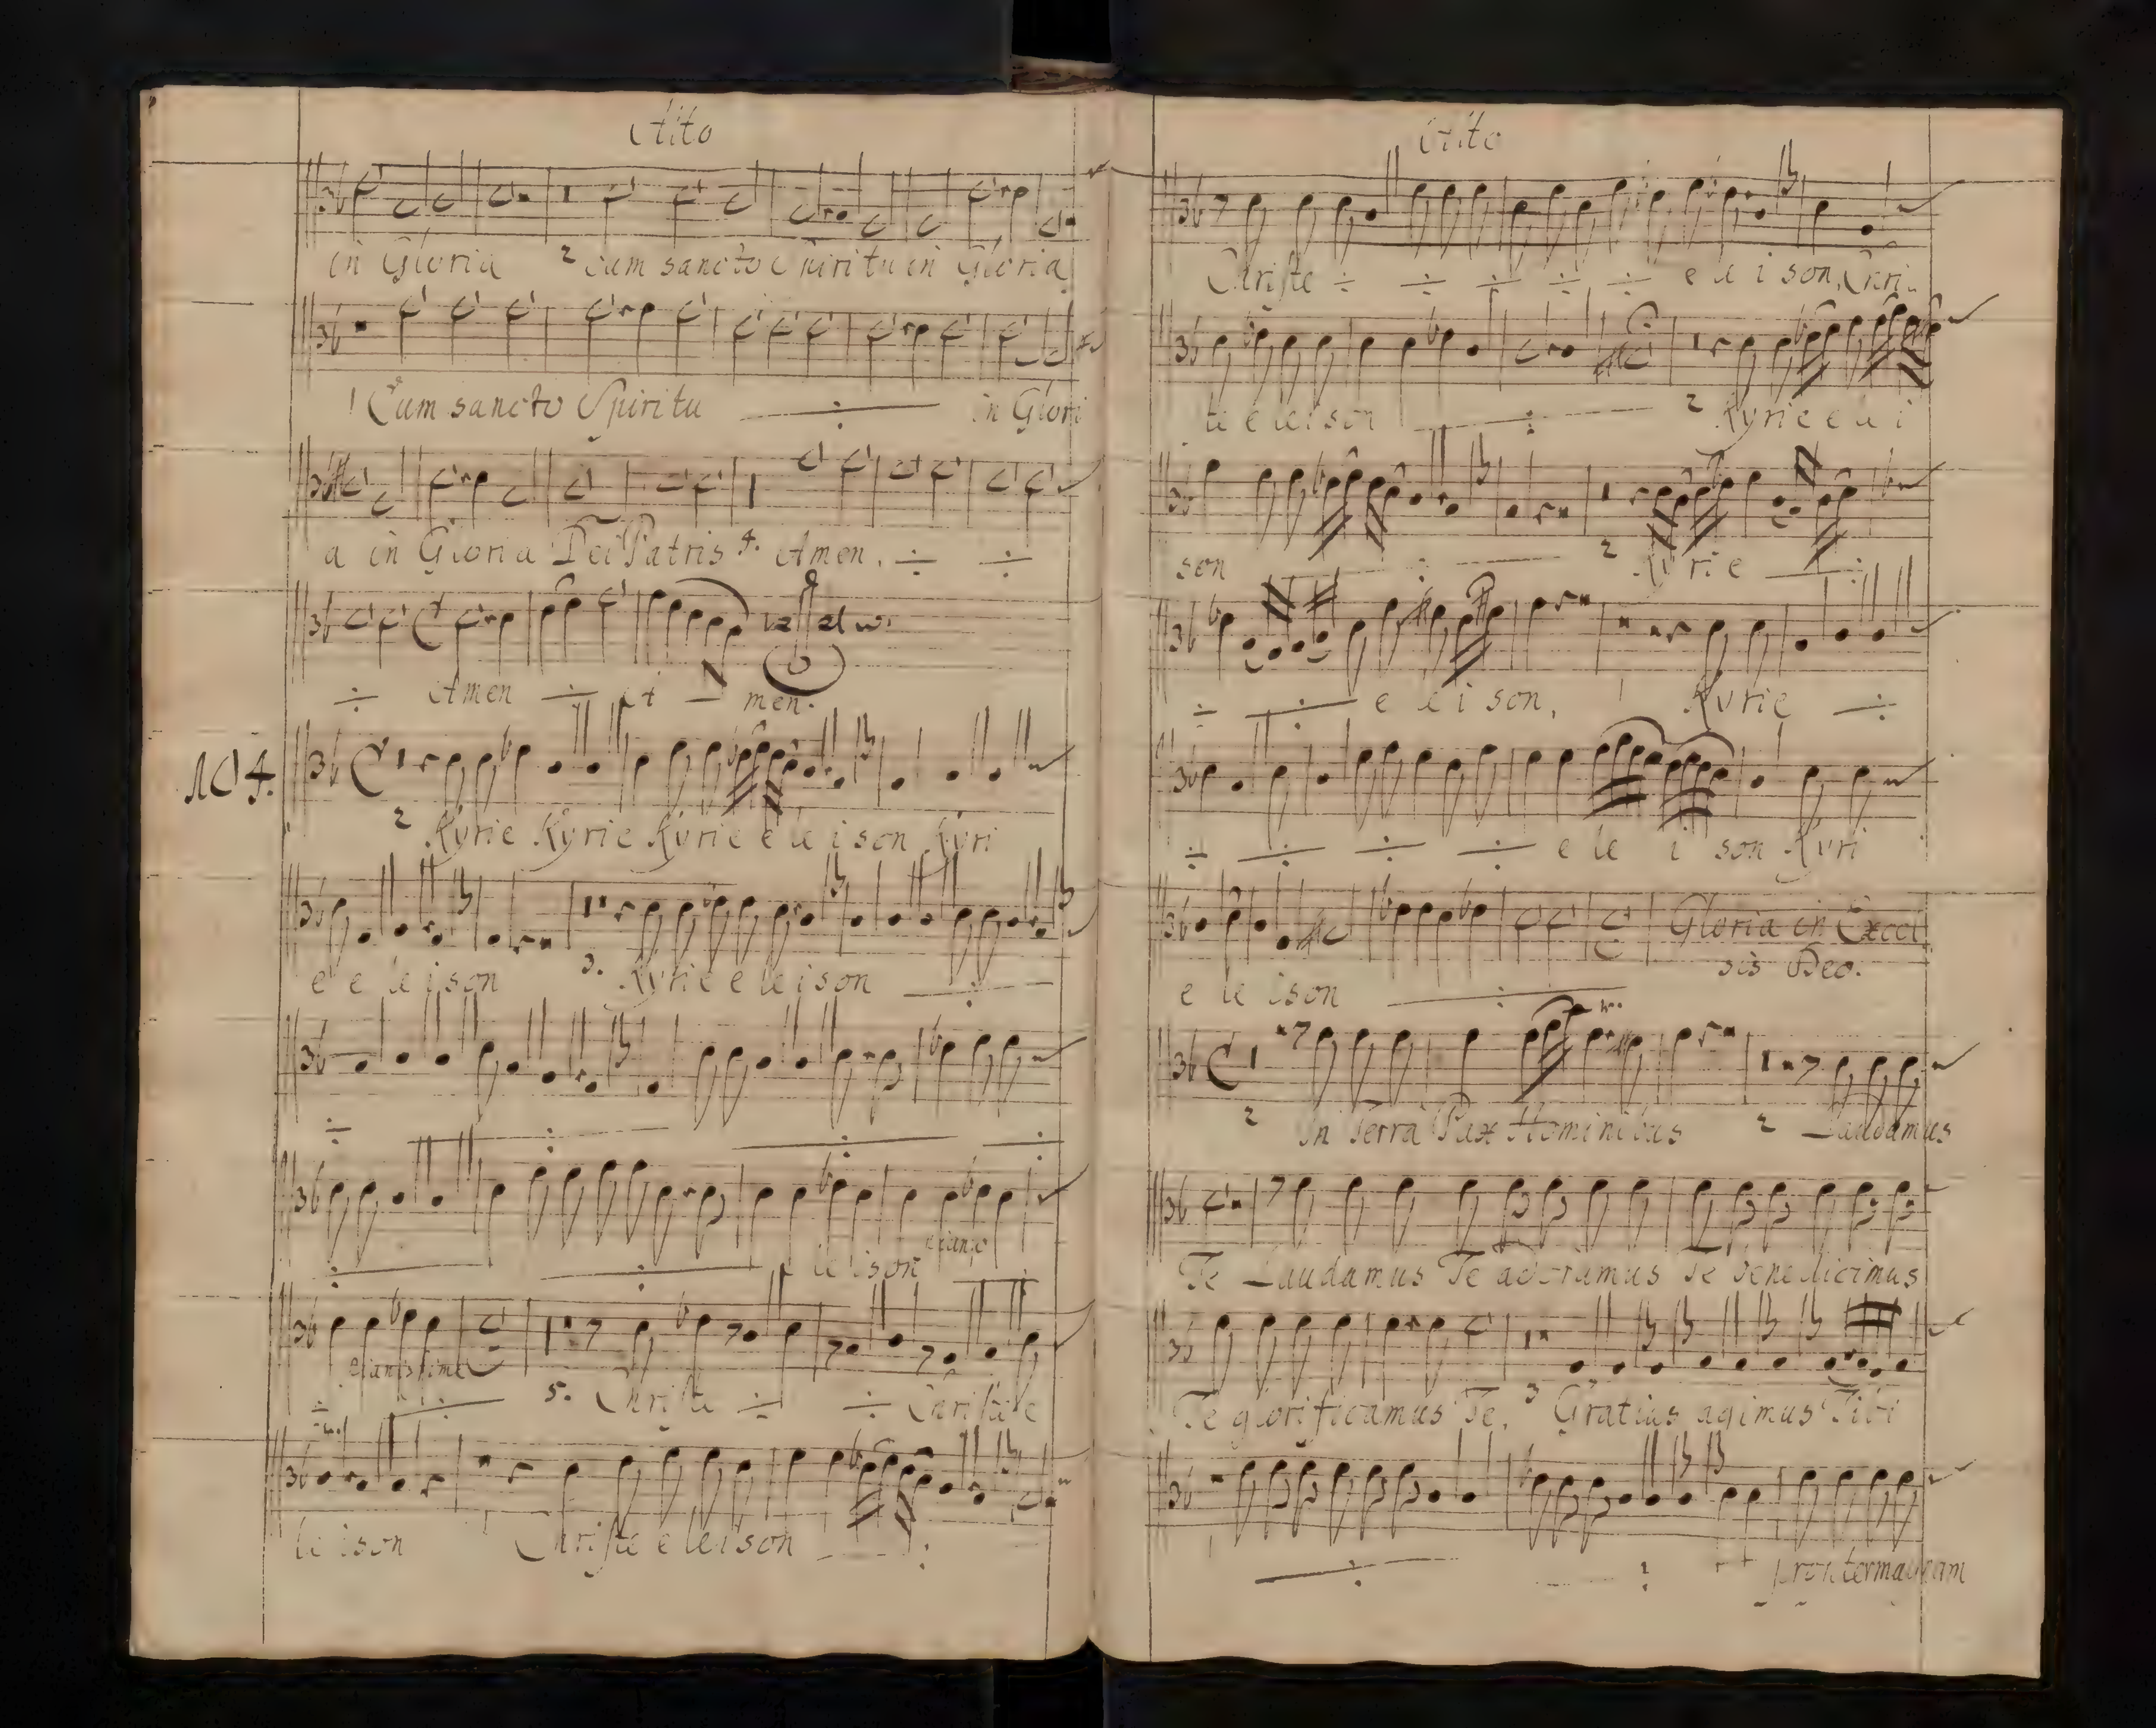 Alto
in Gloria 2 cum sancto Spiritu in Gloria
1 Cum sancto Spiritu ÷ in Glori
a in Gloria Dei Patris 4. Amen. ÷ ÷
÷ Amen ÷ A — men.
104.
2 Kyrie Kyrie Kyrie e le i son Kyri
e e le i son 3. Kyrie e le i son ÷
÷ ÷ ÷ ÷
÷ ÷ e le i son piano
pianissime
÷ ÷ 5. Christe ÷ ÷ Christe e
le i son Christe e le i son ÷
Alto
Christe ÷ ÷ ÷ ÷ ÷ e le i son, Chri
te e le i son ÷ 2 Kyrie e le i
son ÷ 2 Kyrie ÷
÷ ÷ e le i son, 1 Kyrie ÷
÷ ÷ ÷ ÷ e le i son Kyri
Gloria in Excel
sis Deo.
e le ison ÷
2 In Terra Pax Hominibus 2 Laudamus
Te Laudamus Te adoramus Te benedicimus
Te glorificamus Te. 3 Gratias agimus Tibi
÷ ÷ propter magnam